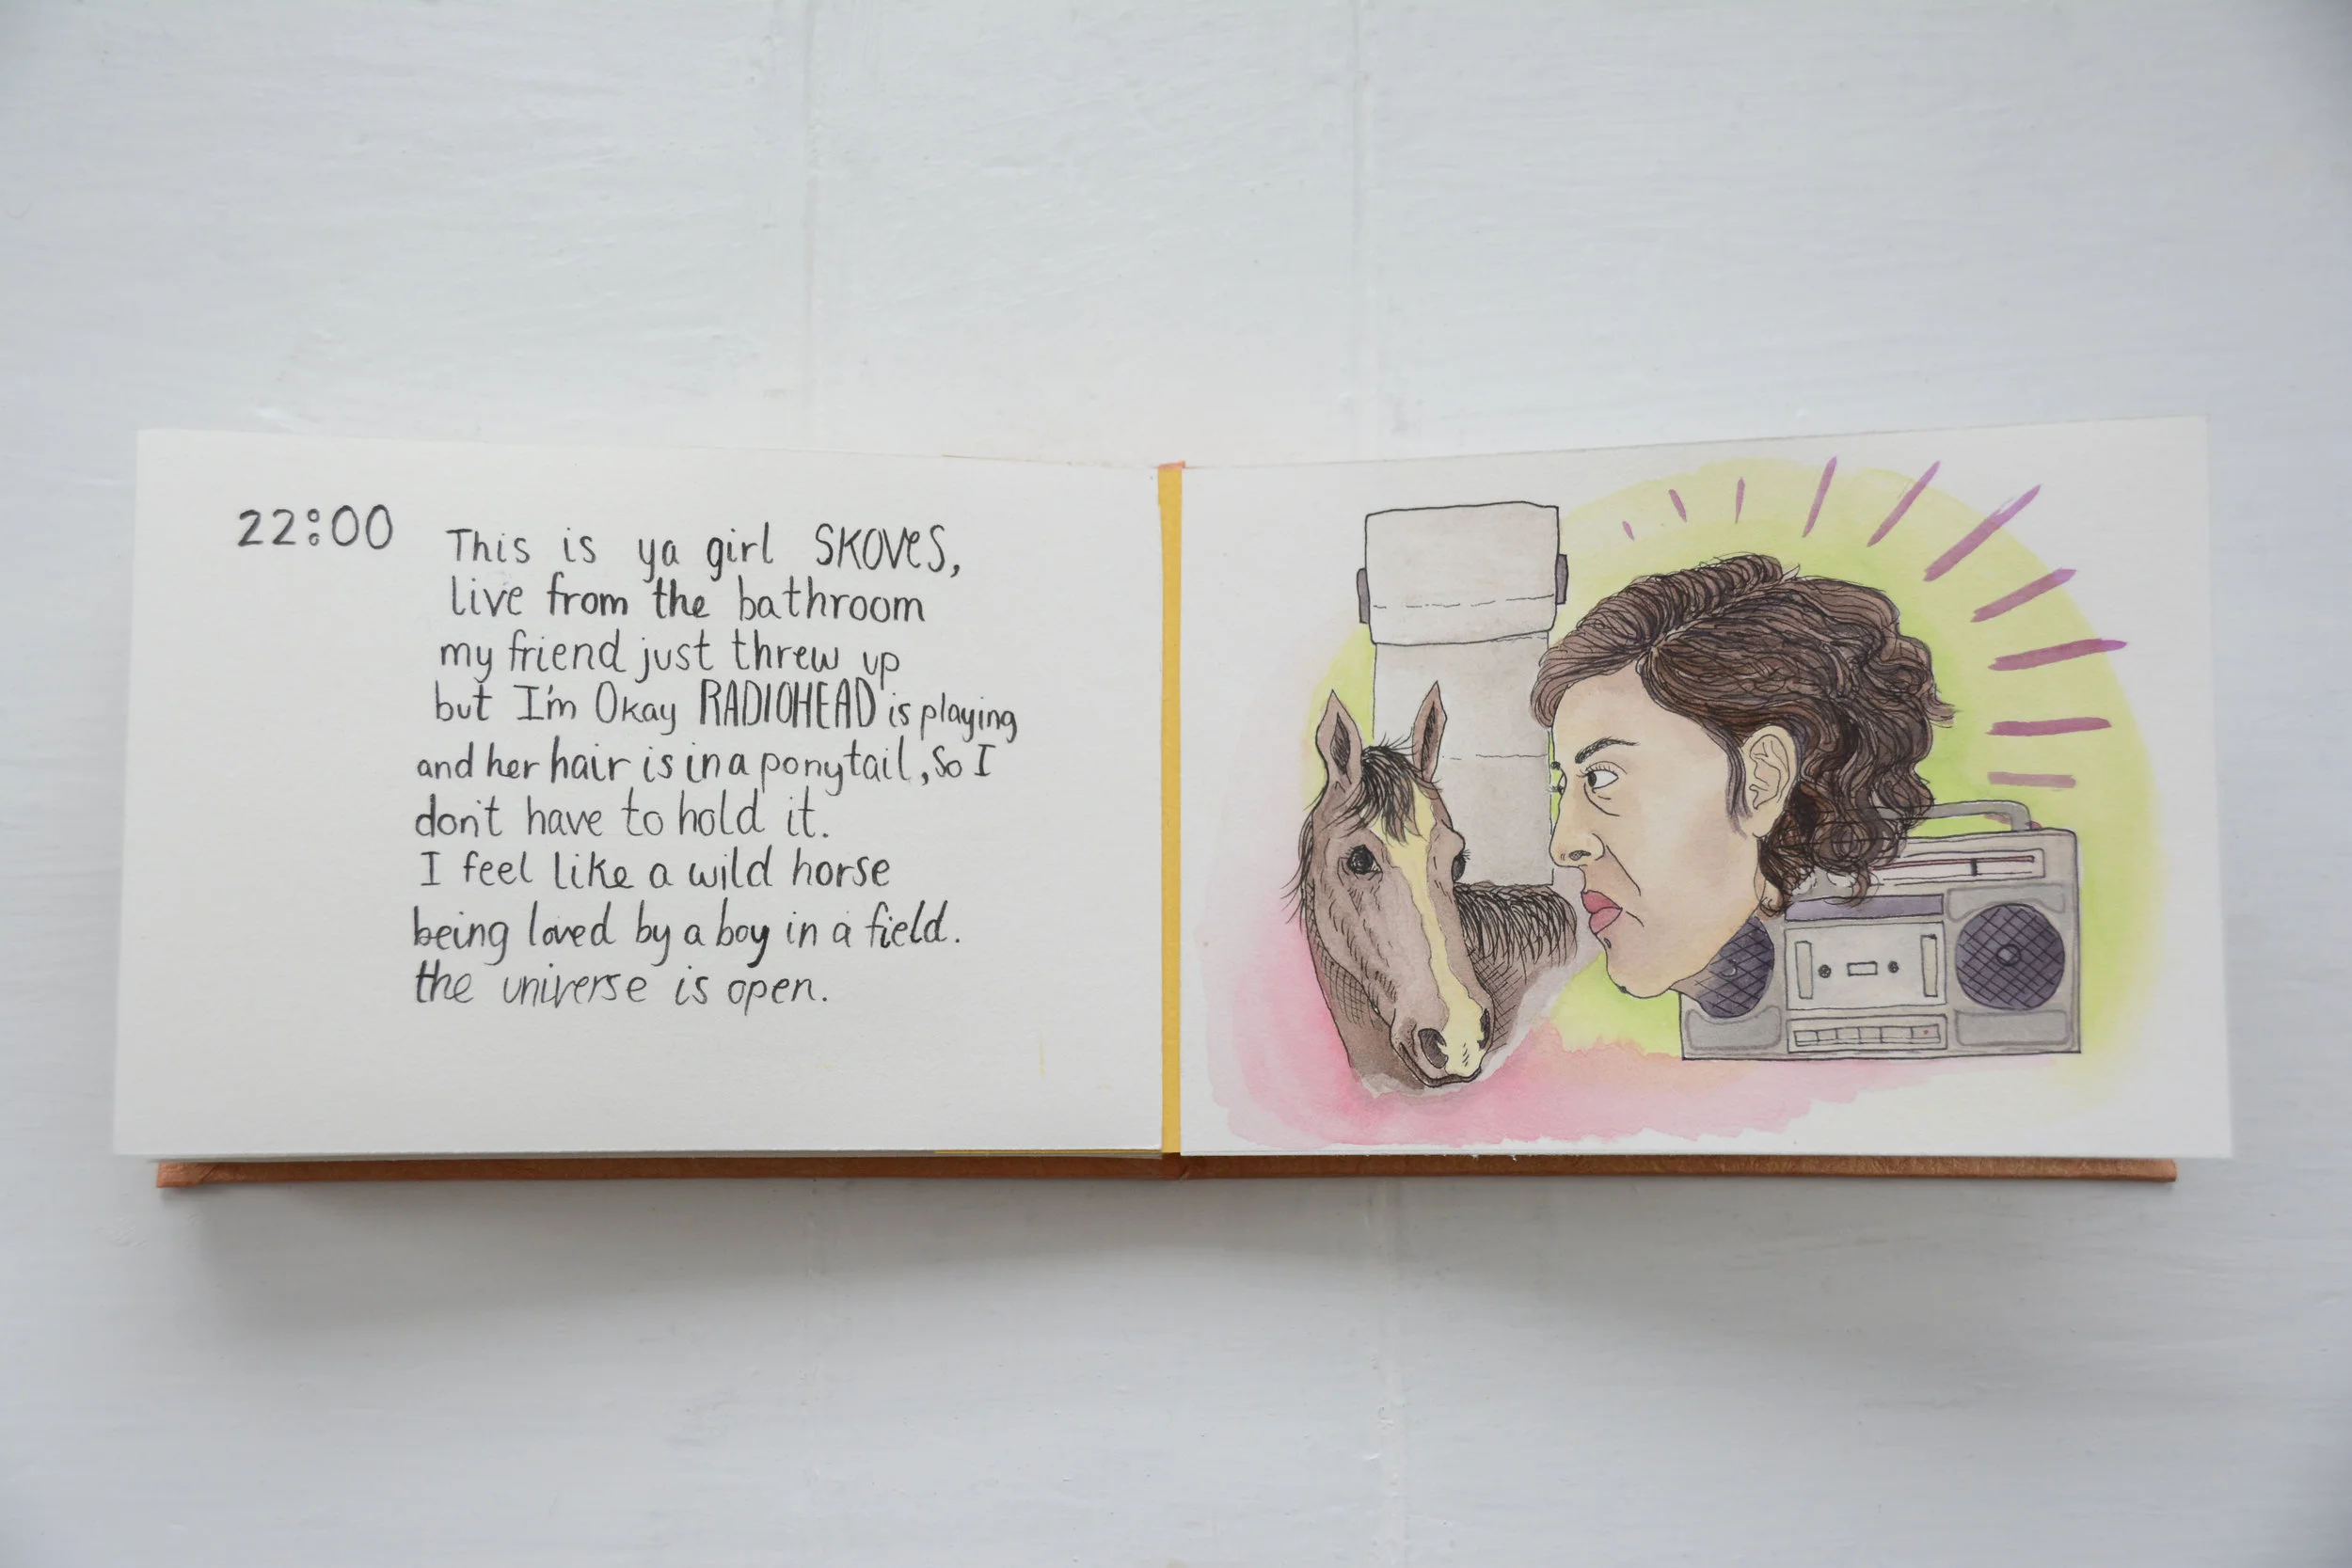 22:00
This is ya girl SKOVES,
live from the bathroom
my friend just threw up
but I'm Okay RADIOHEAD is playing
and her hair is in a ponytail, So I
don't have to hold it.
I feel like a wild horse
being loved by a boy in a field.
the universe is open.